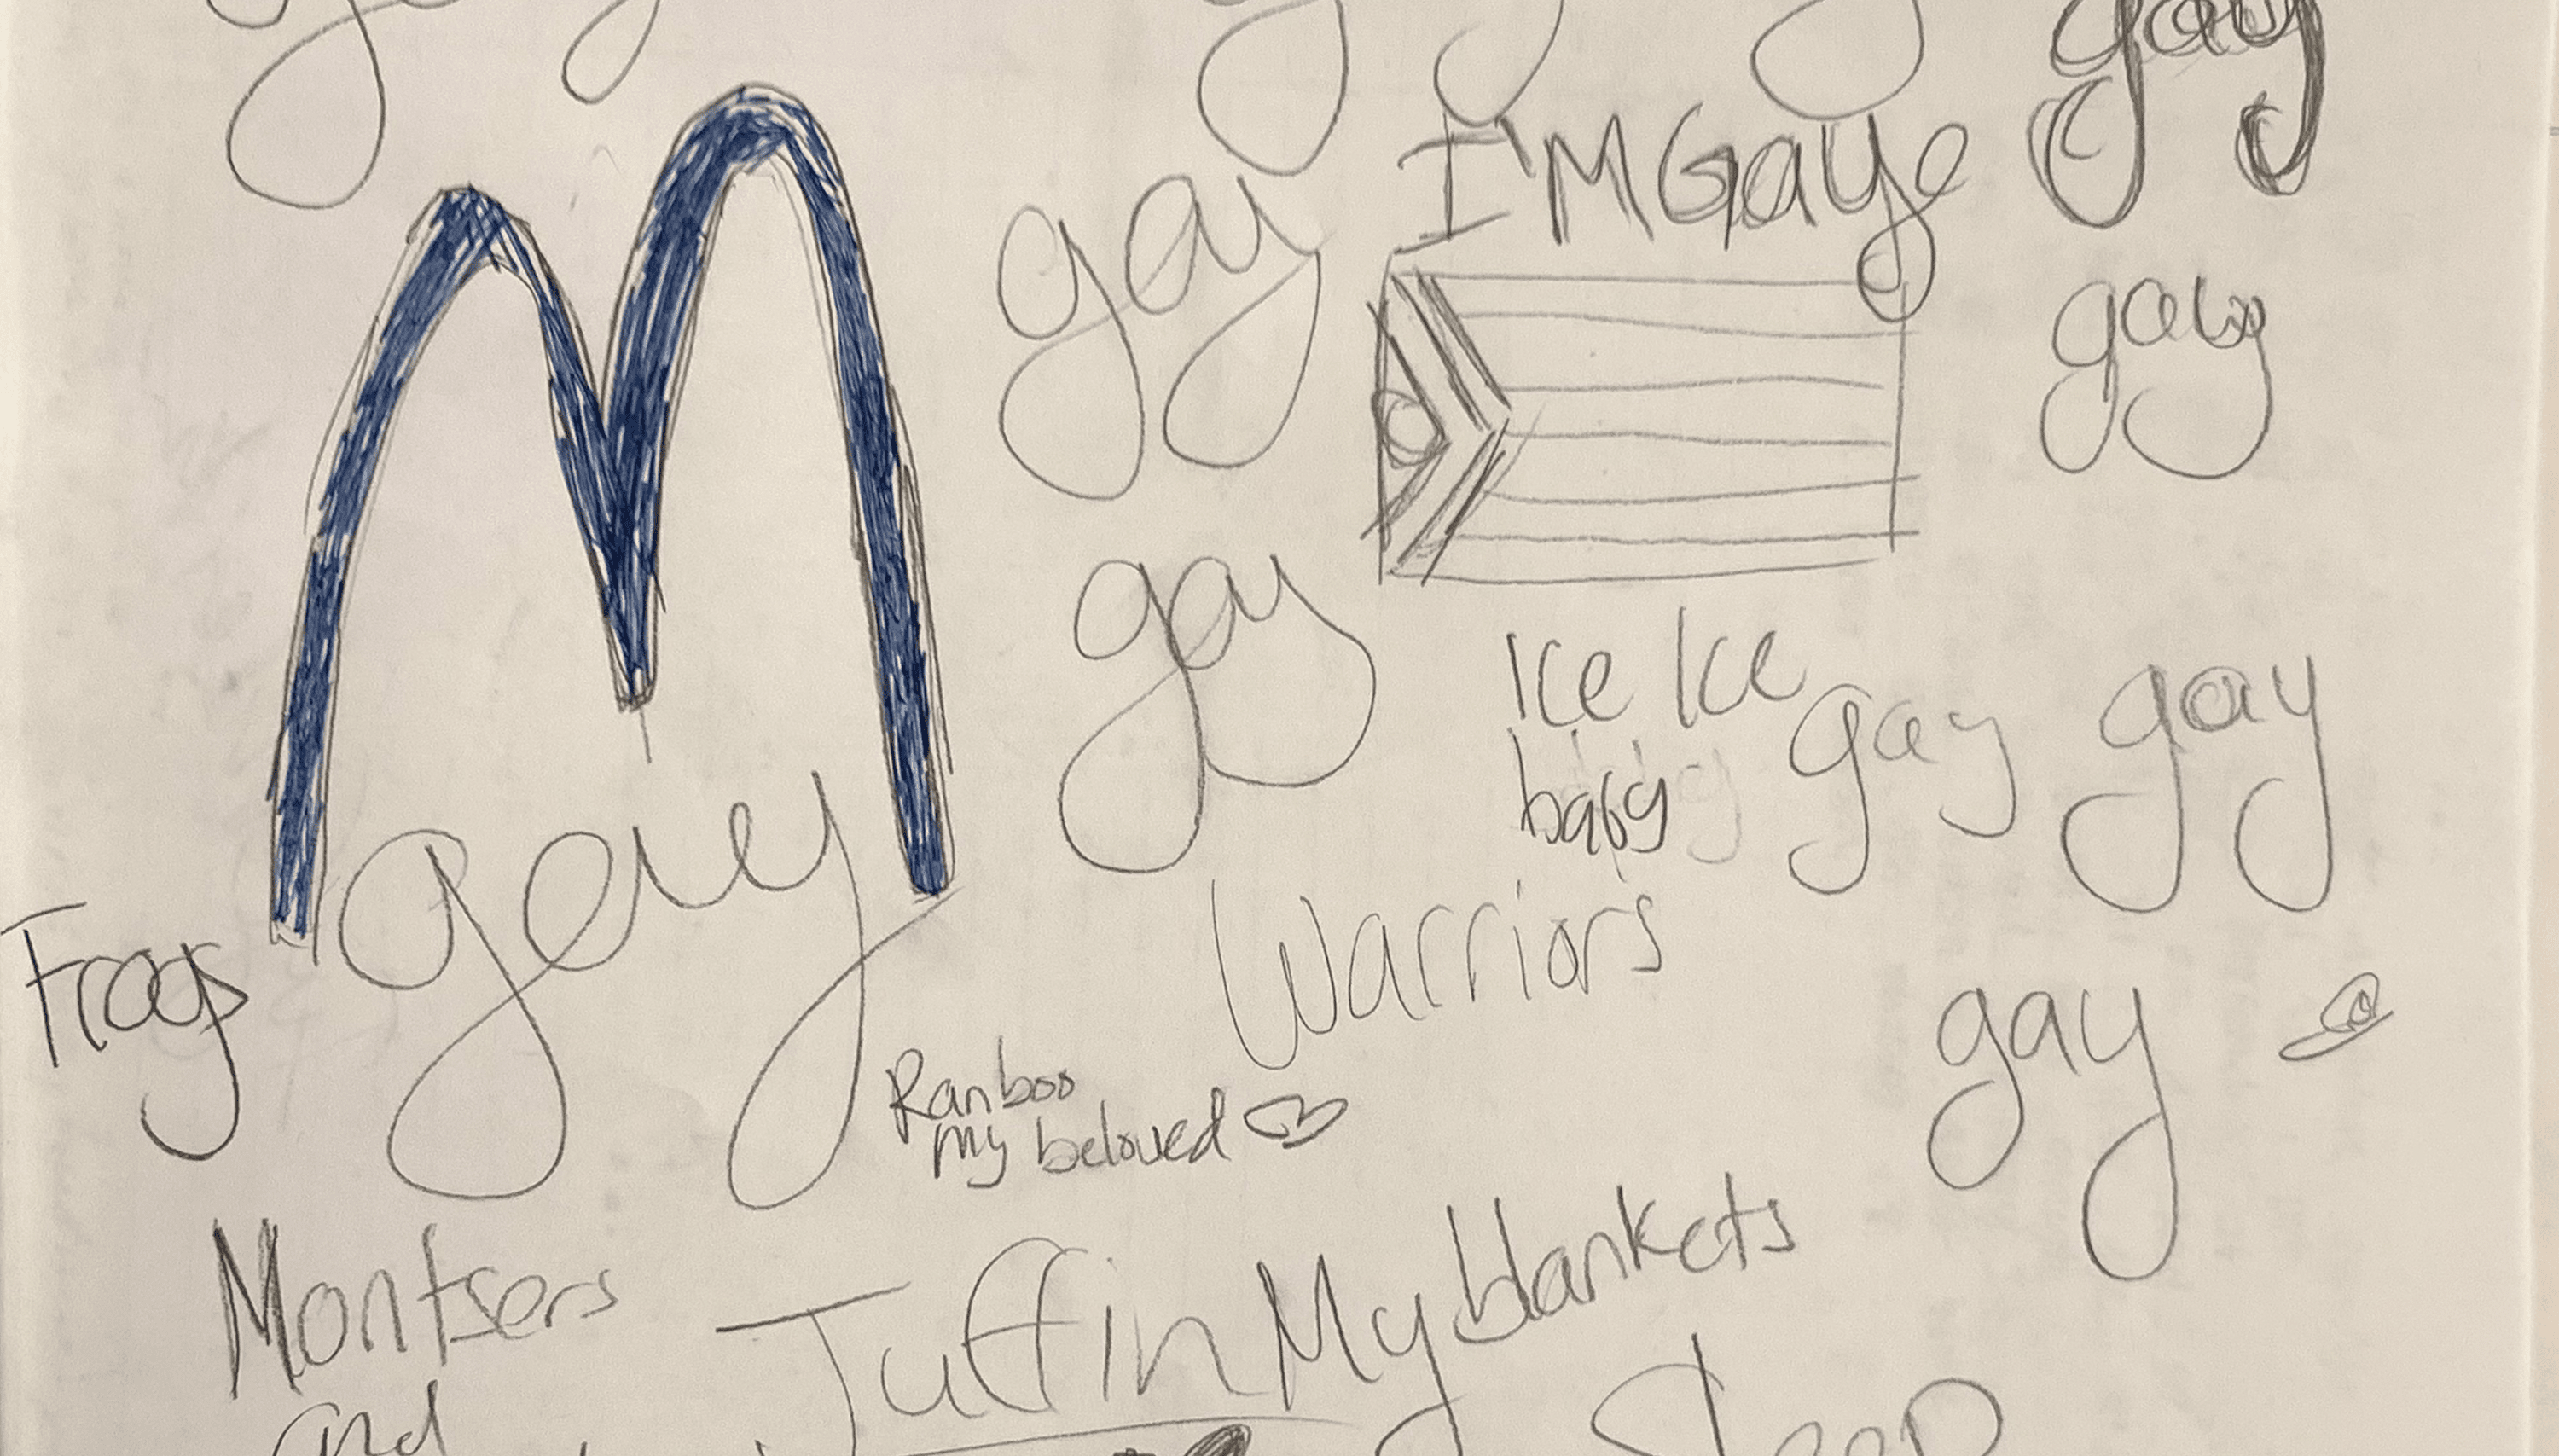 gay
I'M Gaye
gay
gay
gay
Ice Ice
baby
gay
gay
gay
Frogs
Warriors
gay
Ranboo
my beloved
Montsers
and
Tuff in My blankets
Sleep